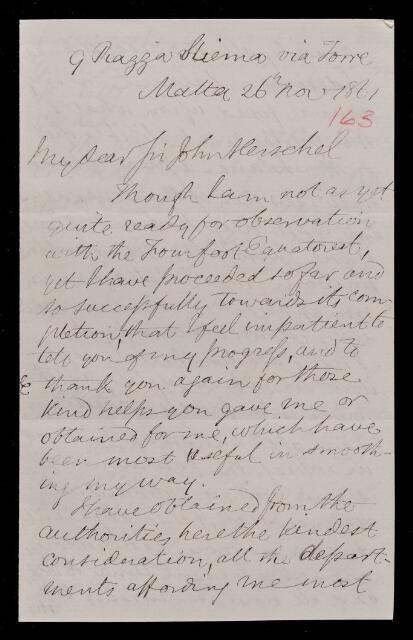 9 Piazza Sliema via Torre
Malta 26th Nov 1861
163
My dear Sir John Herschel
Though I am not as yet
quite ready for observation
with the Fourfoot Equatorial,
yet I have proceeded so far and
so successfully towards its com-
pletion, that I feel impatient to
tell you of my progress, and to
thank you again for those
kind helps you gave me or
obtained for me, which have
been most useful in smooth-
ing my way.
I have obtained from the
authorities here the kindest
consideration, all the depart-
ments affording me most